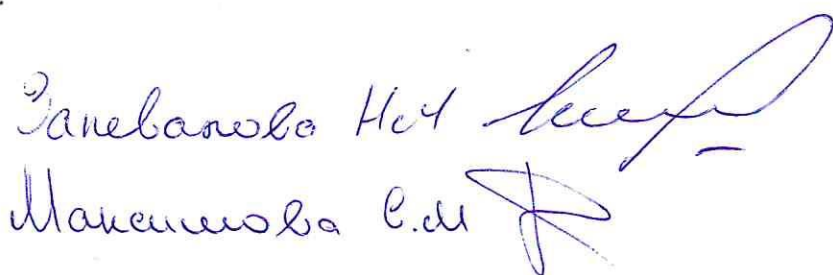 Запевалова Н.И
Максимова С.М